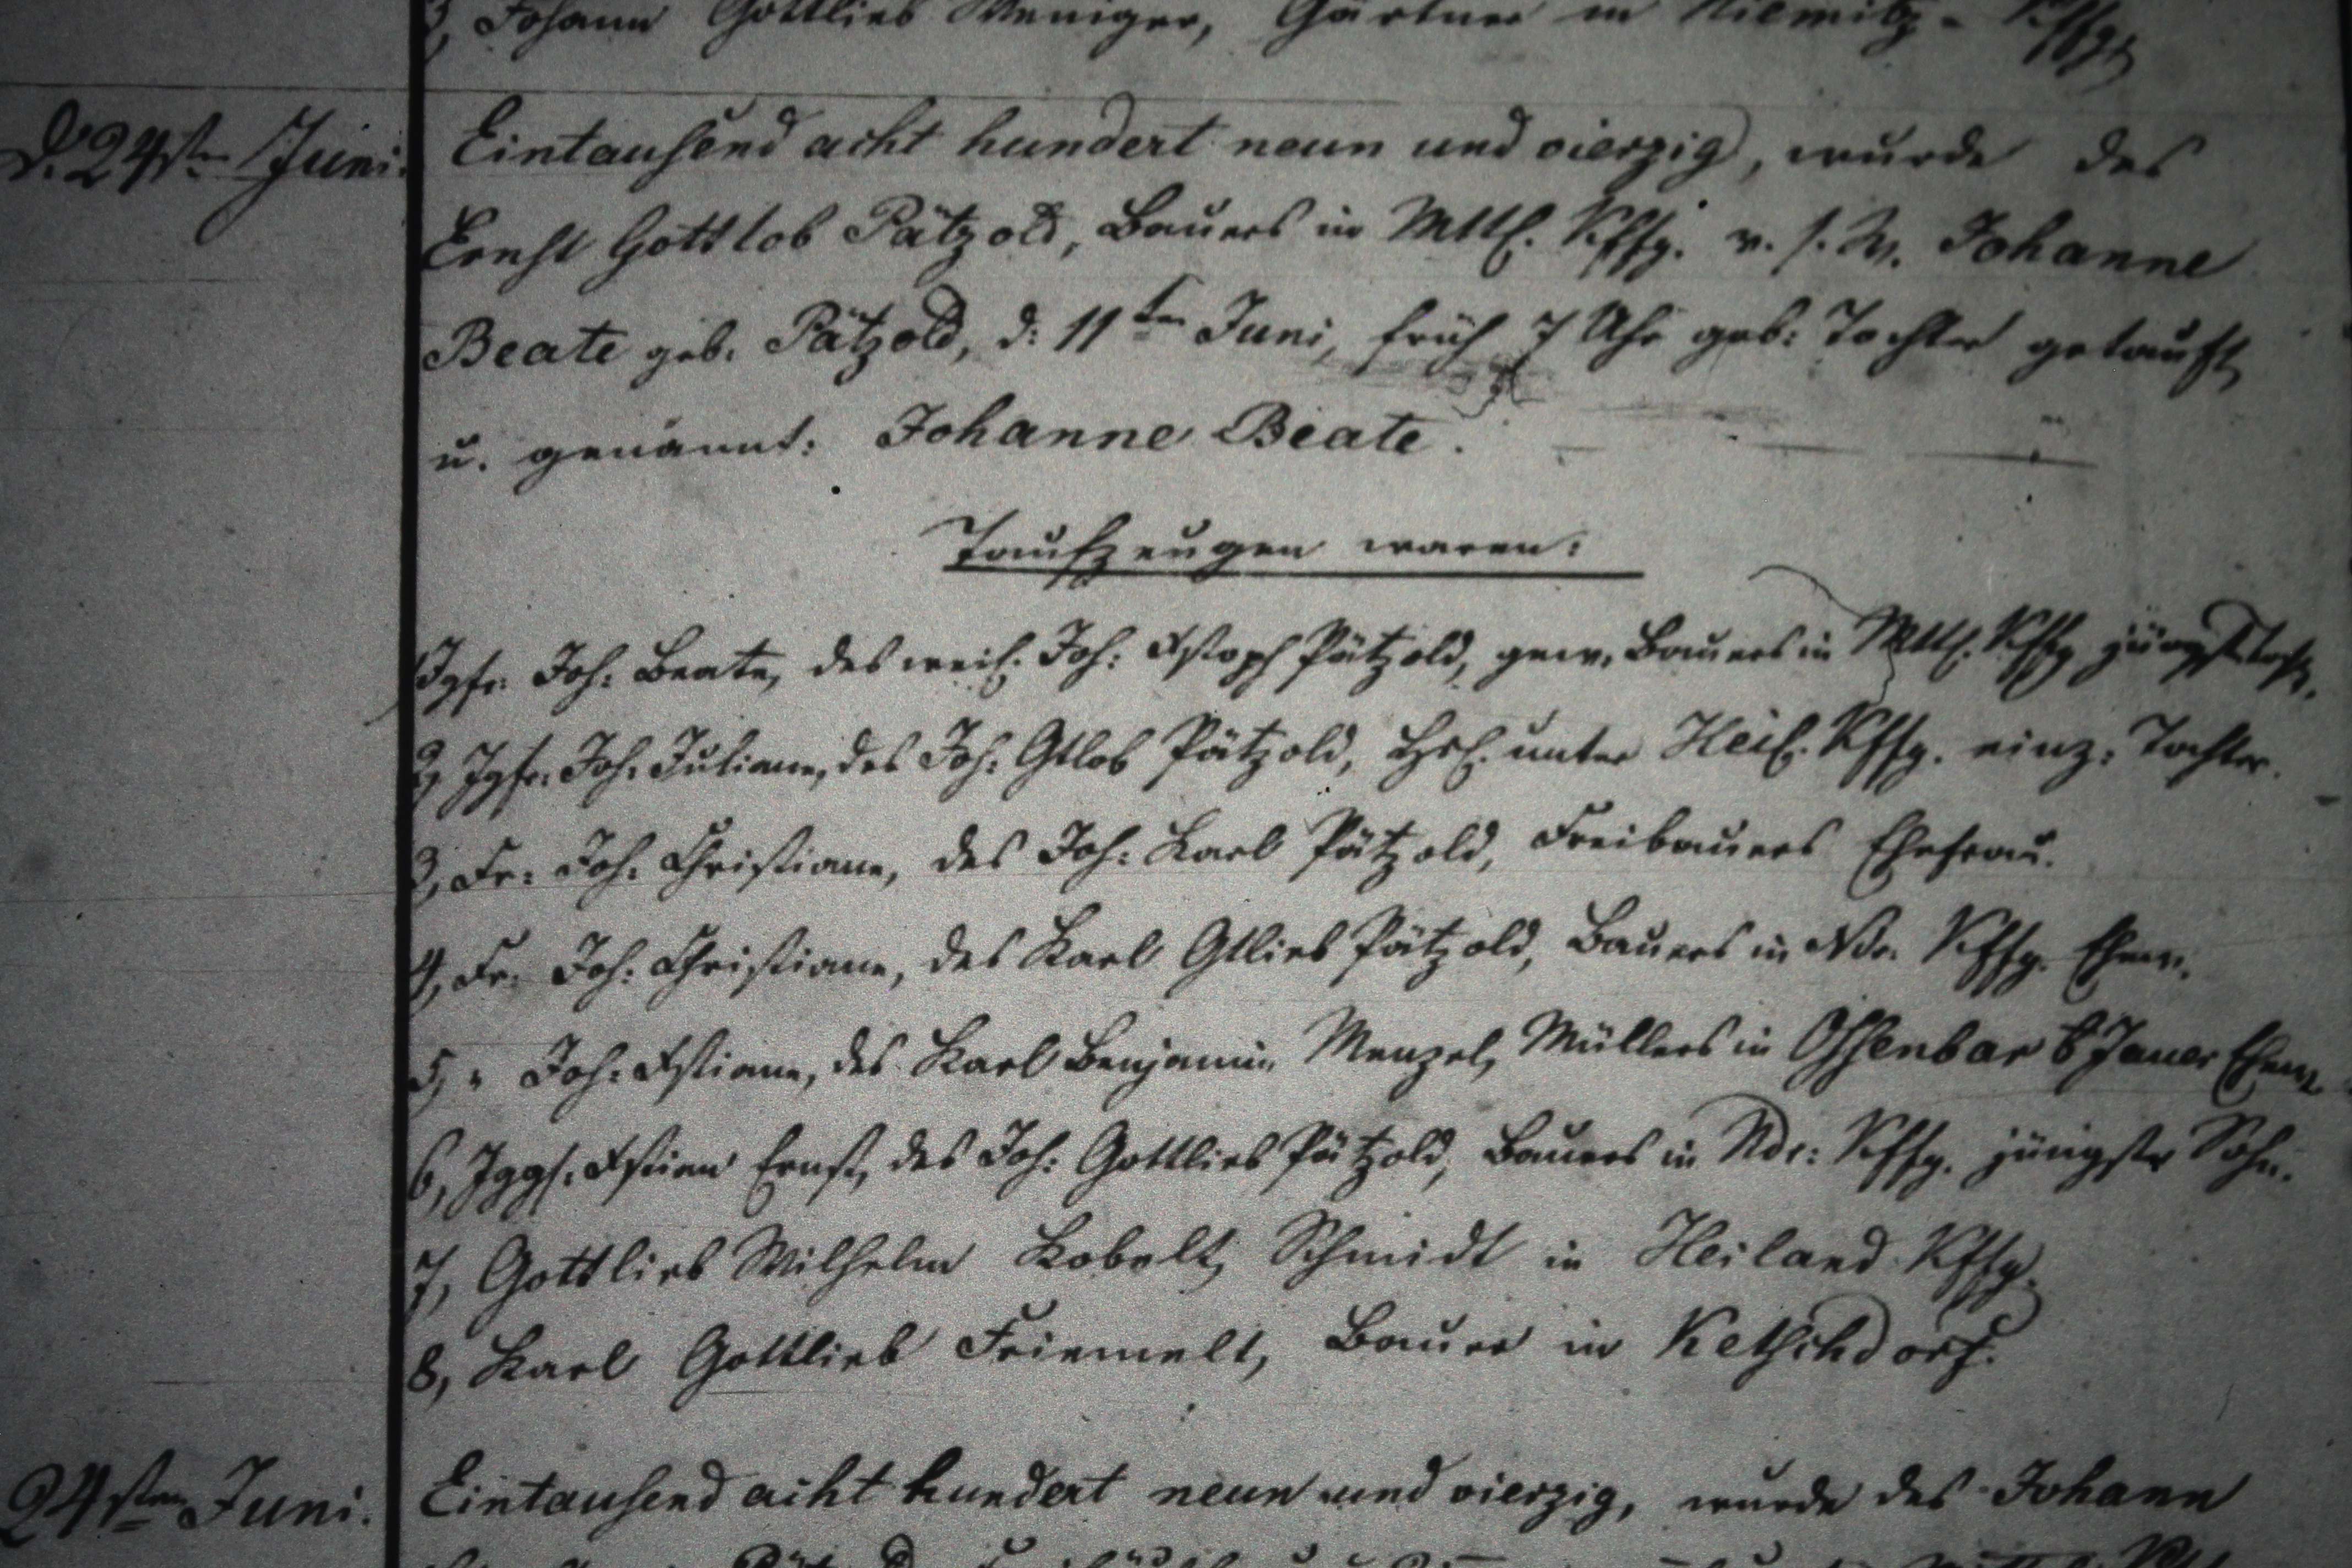 3, Johann Gottlieb Weniger, Gärtner in Niemitz-Kffg.
d. 24sten Juni.
Eintausend acht hundert neun und vierzig, wurde des
Ernst Gottlob Pätzold, Bauers in Mttl. Kffg. v. s. W. Johanne
Beate geb. Pätzold, d: 11ten Juni, früh 7 Uhr geb: Tochter getauft
u. genannt: Johanne Beate.
Taufzeugen waren:
1, Jgfr. Joh: Beate, des weil. Joh: Xstoph Pätzold, gew. Bauers in Mttl. Kffg jüngst. Tocht.
2, Jgfr. Joh. Juliane, des Joh: Gtlob Pätzold, Hsl. unter Heil. Kffg. einz: Tochter.
3, Fr: Joh: Christiane, des Joh: Karl Pätzold, Freibauers Ehefrau.
4, Fr. Joh: Christiane, des Karl Gtlieb Pätzold, Bauers in Ndr. Kffg. Ehew.
5, " Joh: Xstiane, des Karl Benjamin Menzel, Müllers in Ossenbar b Jauer Ehew
6, Jggs. Xstian Ernst, des Joh: Gottlieb Pätzold, Bauers in Ndr: Kffg. jüngster Sohn.
7, Gottlieb Wilhelm Kobelt, Schmidt in Heiland Kffg.
8, Karl Gottlieb Friemelt, Bauer in Ketschdorf.
24sten Juni.
Eintausend acht hundert neun und vierzig, wurde des Johann